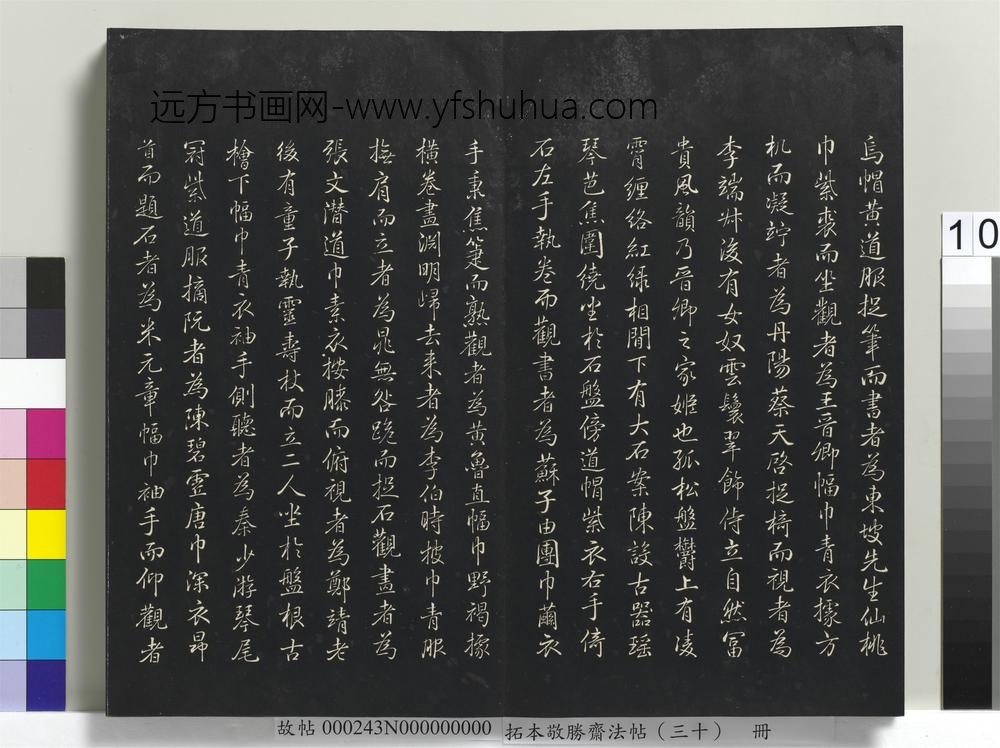 远方书画网-www.yfshuhua.com
烏帽黃道服捉筆而書者為東坡先生仙桃
巾紫裘而坐觀者為王晉卿幅巾青衣據方
机而凝竚者為丹陽蔡天啓捉椅而視者為
李端叔後有女奴雲鬟翠飾侍立自然冨
貴風韻乃晉卿之家姬也孤松盤欝上有凌
霄纏絡紅緑相間下有大石案陳設古器瑶
琴芭蕉圍繞坐於石盤傍道帽紫衣右手倚
石左手執卷而觀書者為蘇子由團巾繭衣
手秉蕉箑而熟觀者為黃魯直幅巾野褐據
橫卷畫淵明歸去来者為李伯時披巾青服
撫肩而立者為晁無咎跪而捉石觀畫者為
張文潛道巾素衣按膝而俯視者為鄭靖老
後有童子執靈壽杖而立二人坐於盤根古
檜下幅巾青衣袖手側聽者為秦少游琴尾
冠紫道服摘阮者為陳碧虛唐巾深衣昂
首而題石者為米元章幅巾袖手而仰觀者
10
故帖 000243N000000000 拓本敬勝齋法帖（三十） 冊